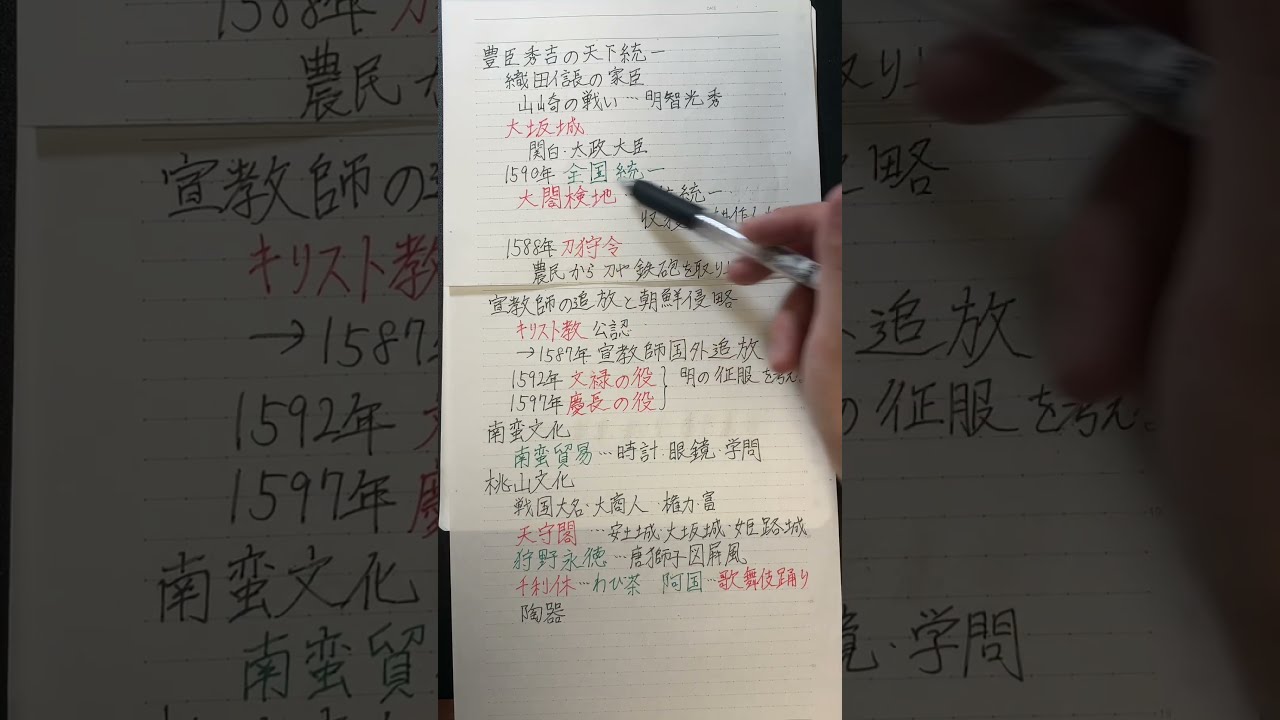 豊臣秀吉の天下統一
織田信長の家臣
山崎の戦い…明智光秀
大坂城
関白・太政大臣
1590年 全国統一
太閤検地 統一
収 耕作
1588年 刀狩令
農民から刀や鉄砲を取り上
宣教師の追放と朝鮮侵略
キリスト教 公認
→1587年 宣教師国外追放
1592年 文禄の役 } 明の征服を考え
1597年 慶長の役
南蛮文化
南蛮貿易…時計・眼鏡・学問
桃山文化
戦国大名・大商人 権力・富
天守閣 …安土城・大坂城・姫路城
狩野永徳…唐獅子図屏風
千利休…わび茶 阿国…歌舞伎踊り
陶器